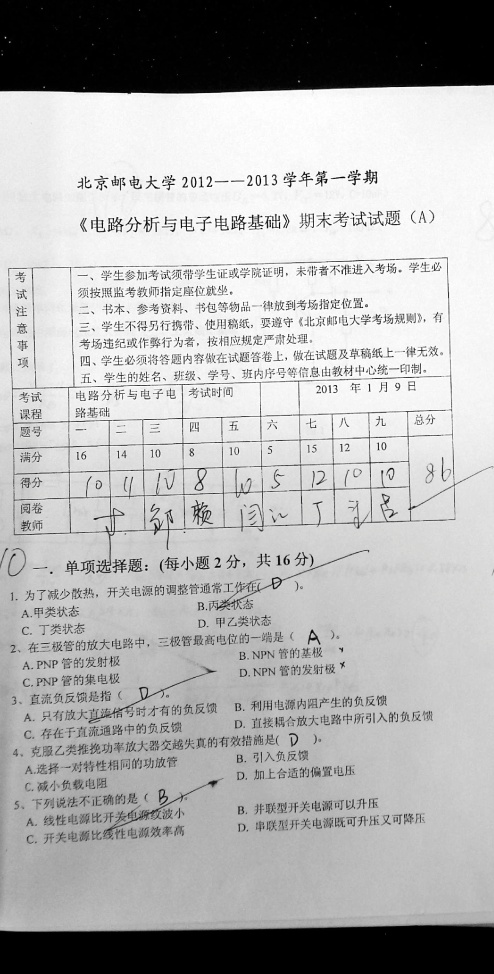 北京邮电大学 2012——2013 学年第一学期
《电路分析与电子电路基础》期末考试试题（A）
考试注意事项
一、学生参加考试须带学生证或学院证明，未带者不准进入考场。学生必
须按照监考教师指定座位就坐。
二、书本、参考资料、书包等物品一律放到考场指定位置。
三、学生不得另行携带、使用稿纸，要遵守《北京邮电大学考场规则》，有
考场违纪或作弊行为者，按相应规定严肃处理。
四、学生必须将答题内容做在试题答卷上，做在试题及草稿纸上一律无效。
五、学生的姓名、班级、学号、班内序号等信息由教材中心统一印制。
考试课程 电路分析与电子电路基础 考试时间 2013 年 1 月 9 日
题号 一 二 三 四 五 六 七 八 九 总分
满分 16 14 10 8 10 5 15 12 10
得分 10 11 10 8 10 5 12 10 10 86
阅卷教师 邹 赖 闫 丁
10 一．单项选择题：(每小题 2 分，共 16 分)
1. 为了减少散热，开关电源的调整管通常工作在( D )。
A.甲类状态 B.丙类状态
C. 丁类状态 D. 甲乙类状态
2、在三极管的放大电路中，三极管最高电位的一端是（ A ）。
A. PNP 管的发射极 B. NPN 管的基极 ×
C. PNP 管的集电极 D. NPN 管的发射极 ×
3、直流负反馈是指（ D ）。
A. 只有放大直流信号时才有的负反馈 B. 利用电源内阻产生的负反馈
C. 存在于直流通路中的负反馈 D. 直接耦合放大电路中所引入的负反馈
4、克服乙类推挽功率放大器交越失真的有效措施是( D )。
A.选择一对特性相同的功放管 B. 引入负反馈
C. 减小负载电阻 D. 加上合适的偏置电压
5、下列说法不正确的是（ B ）。
A. 线性电源比开关电源纹波小 B. 并联型开关电源可以升压
C. 开关电源比线性电源效率高 D. 串联型开关电源既可升压又可降压